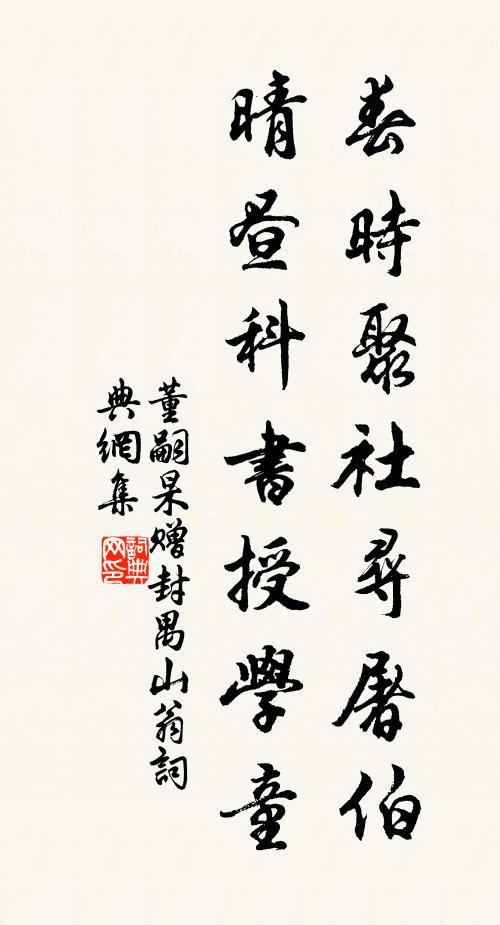 春時聚社尋屠伯
晴晝科書授學童
董嗣杲赠封禺山翁詞
典網集
詞典網印